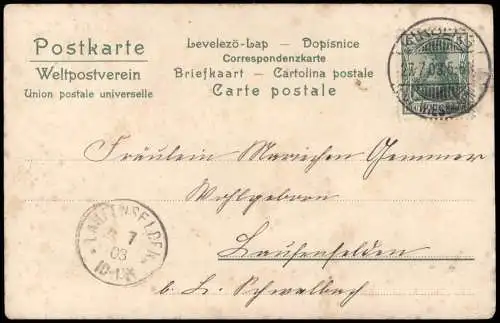 Postkarte
Weltpostverein
Union postale universelle
Levelezö-Lap — Dopisnice
Correspondenzkarte
Briefkaart — Cartolina postale
Carte postale
27.7.03.5
WIESB
Fräulein Mariechen Gemmer
Wohlgeboren
Laufenselden
b. L. Schwalbach
LAUFENSELDEN
7
03